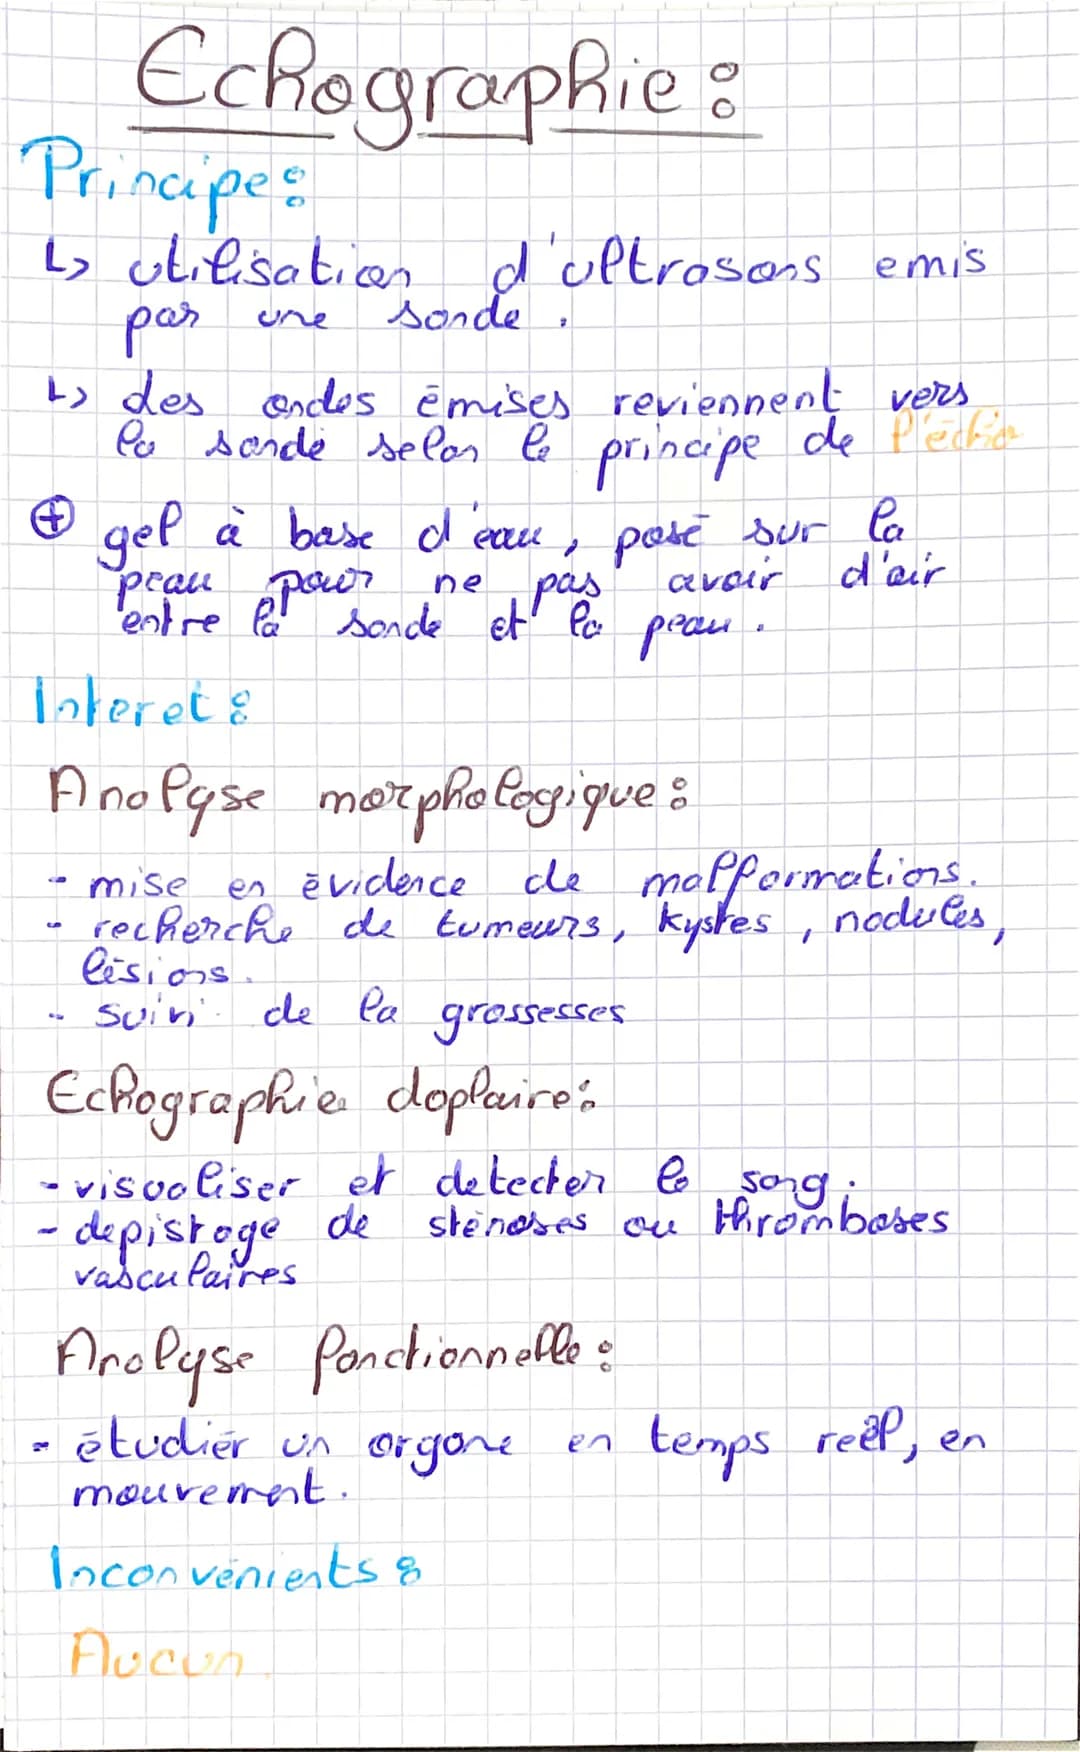 Echographie :
Principe :
↳ utilisation d'ultrasons emis
par une sonde .
↳ des ondes émises reviennent vers
la sonde selon le principe de l'écho
⊕ gel à base d'eau , posé sur la
peau pour ne pas avoir d'air
entre la sonde et la peau .
Interet :
Analyse morphologique :
- mise en évidence de malfformations.
- recherche de tumeurs, kystes , nodules,
lésions .
- suivi de la grossesses
Echographie doplaire :
- visualiser et detecter le sang .
- depistage de sténoses ou thromboses
vasculaires
Analyse fonctionnelle :
- étudier un organe en temps reél, en
mouvement .
Inconvénients :
Aucun .